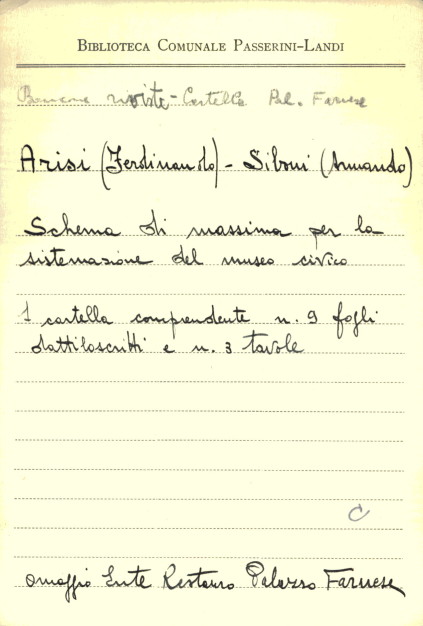 BIBLIOTECA COMUNALE PASSERINI-LANDI
Bancone riviste - Cartella Pal. Farnese
Arisi (Ferdinando) - Siboni (Armando)
Schema di massima per la
sistemazione del museo civico
1 cartella comprendente n. 9 fogli
dattiloscritti e n. 3 tavole
C
omaggio Ente Restauro Palazzo Farnese